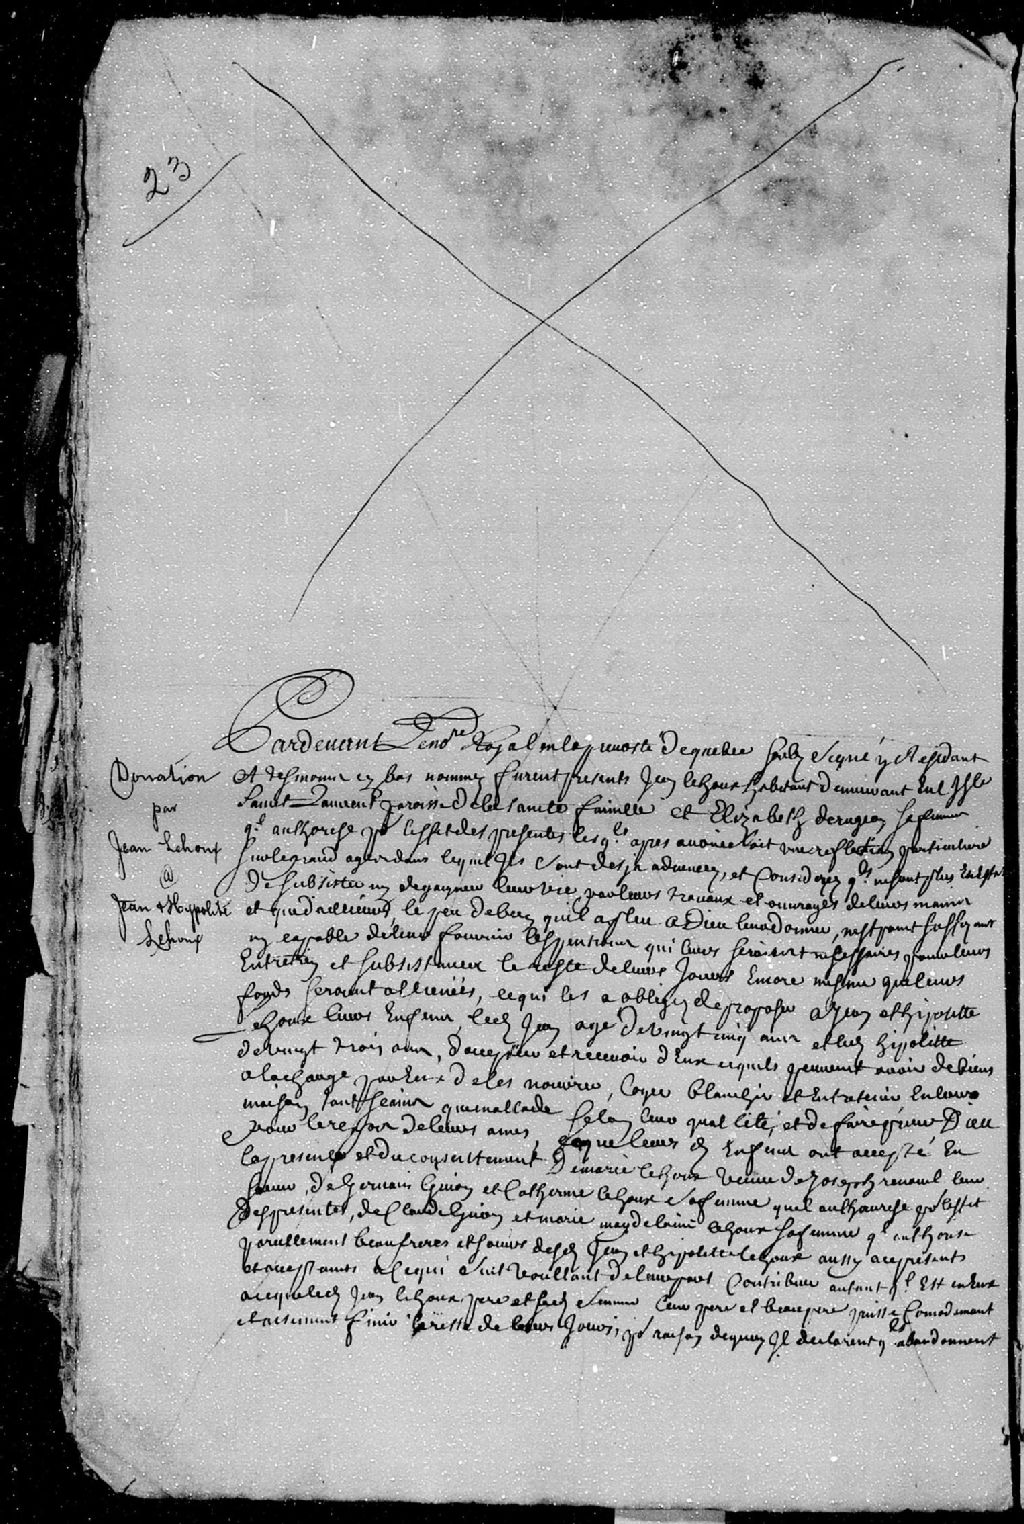 23
Donation
par
Jean Lehoux
@
Jean & Hyppolite
Lehoux
Pardevant Le no.re Royal en la prevosté de quebec soub signé y Residant
et tesmoins cy bas nommez furent presents Jean lehoux habitant demeurant En L Isle
Saint Laurent parroisse de la sainte famille et Elizabeth sa femme
q.l authorise po.r l'effet des presentes lesq.ls apres avoir fait une reflection particuliere
sur le grand age dans lequel Ils sont desja advancez, et Considerez q.ls ne sont plus En Estat
de subsister ny de gagner leur vie par leurs travaux et ouvrages de leurs mains
et que d'ailleurs le peu de bien qu'il a plu a Dieu leur donner, n'est point suffisant
ny capable de leur fournir qui leurs seroient necessaires pour leurs
Entretien et subsistance le reste de leurs Jours Encore mesme que leurs
fonds seroient allienées, ce qui les a obligez de proposer a Jean et hipolitte
Lehoux leurs Enfans, led Jean agé de vingt cinq ans et led hipolitte
de vingt trois ans, d'accepter et recevoir d'Eux ce qu'ils peuvent avoir de biens
a la charge par Eux de les nourir, Loger blanchir et Entretenir En leur
maison tant sains que mallade selon leur quallité, et de faire prier Dieu
pour le repos de leurs ames, leurs d Enfans ont accepté En
la presence et du consentement De marie lehoux veuve de Joseph renaul leur
soeur, de Germain Guion et Catherine lehoux sa femme quel authorise po.r l'effet
des presentes, de Claude Guion et marie magdelaine lehoux sa femme q.l authorise
parrellement beaufreres et soeurs desd Jean et hipolitte lehoux aussy a ce presents
et acceptants a ce qui suit voullant de leur part Contribuer autant q.l Est en Eux
a ce que led Jean lehoux pere et lad femme leur pere et beau pere puisse Comodement
et aisement finir le reste de leurs Jours, po.r raison de quoy Il declarent q.ls abandonnent